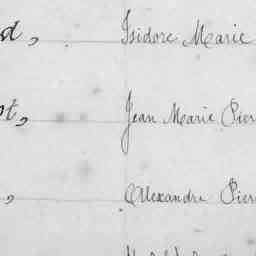 d, Isidore Marie
t, Jean Marie Pier
, Alexandre Pier